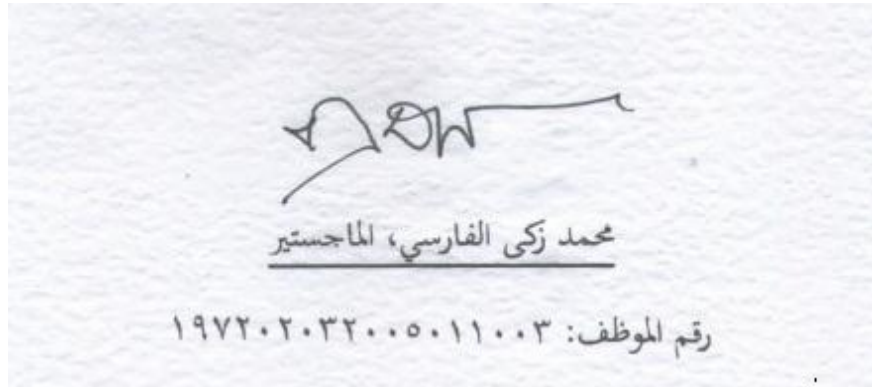 محمد زكى الفارسي، الماجستير
رقم الموظف: ١٩٧٢٠٢٠٣٢٠٠٥٠١١٠٠٣